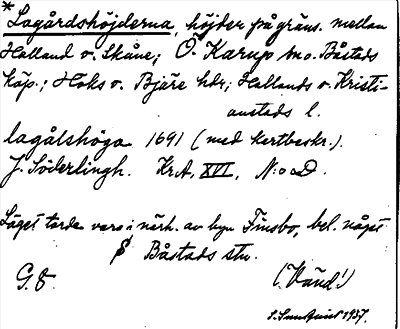 *Lagårdshöjderna, höjder på gräns. mellan
Halland o. Skåne; Ö. Karup sn o. Båstads
köp.; Höks o. Bjäre hdr; Hallands o. Kristi-
anstads l.
lagålshöga 1691 (med kartbeskr.).
J. Söderlingh. Kr.A. XVI, N:o
Läget torde vara i närh. av byn Finsbo, bel. något
S Båstads stn.
G. 8. (Vänd!)
S. Sundquist 1937.